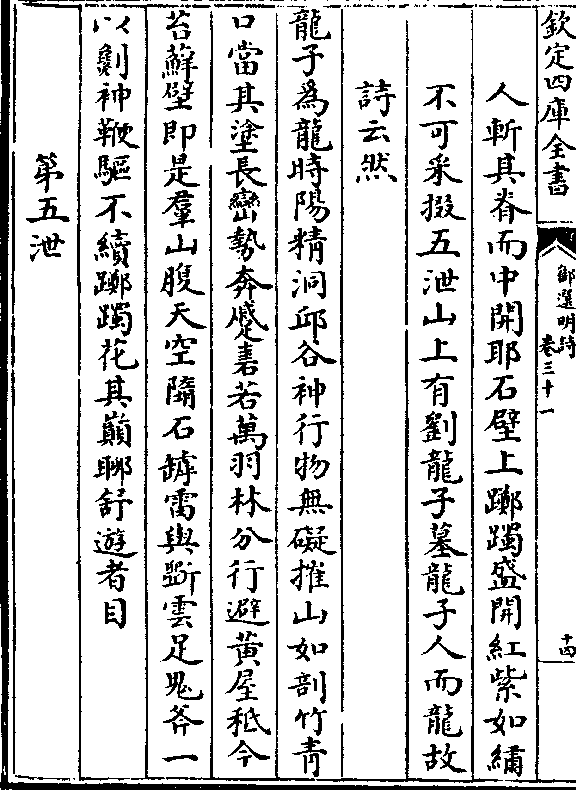 欽定四庫全書
御選明詩
卷三十一
十四
人斬其脊而中開耶石壁上躑躅盛開紅紫如繡
不可采掇五泄山上有劉龍子墓龍子人而龍故
詩云然
龍子爲龍時陽精洞邱谷神行物無礙摧山如剖竹青
口當其塗長巒勢奔蹙砉若萬羽林分行避黄屋秪今
苔蘚壁即是羣山腹天空隨石罅雷與斷雲足鬼斧一
以劖神鞭驅不續躑躅花其巔聊舒遊者目
第五泄